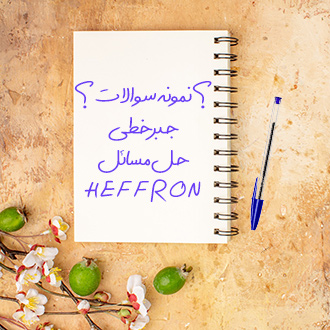 ؟ نمونه سوالات ؟
جبرخطی
حل مسائل
HEFFRON